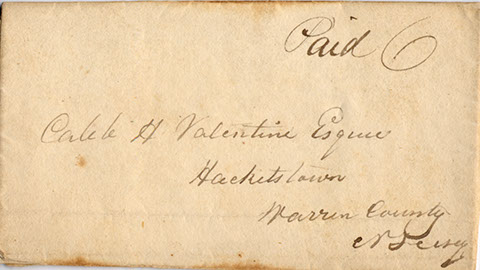 Paid 6
Caleb H Valentine Esquire
Hacketstown
Warren County
N Jersey